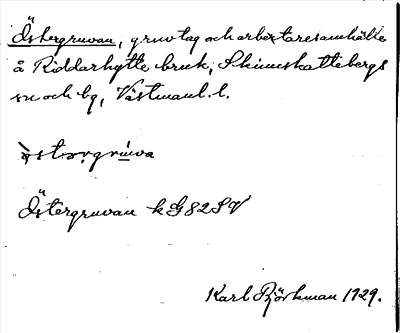 Östergruvan, gruvlag och arbetaresamhälle
å Riddarhytte bruk, Skinnskattebergs
sn och bg, Västmanl. l.
östərgrùva
Östergruvan k G82SV
Karl Björkman 1929.